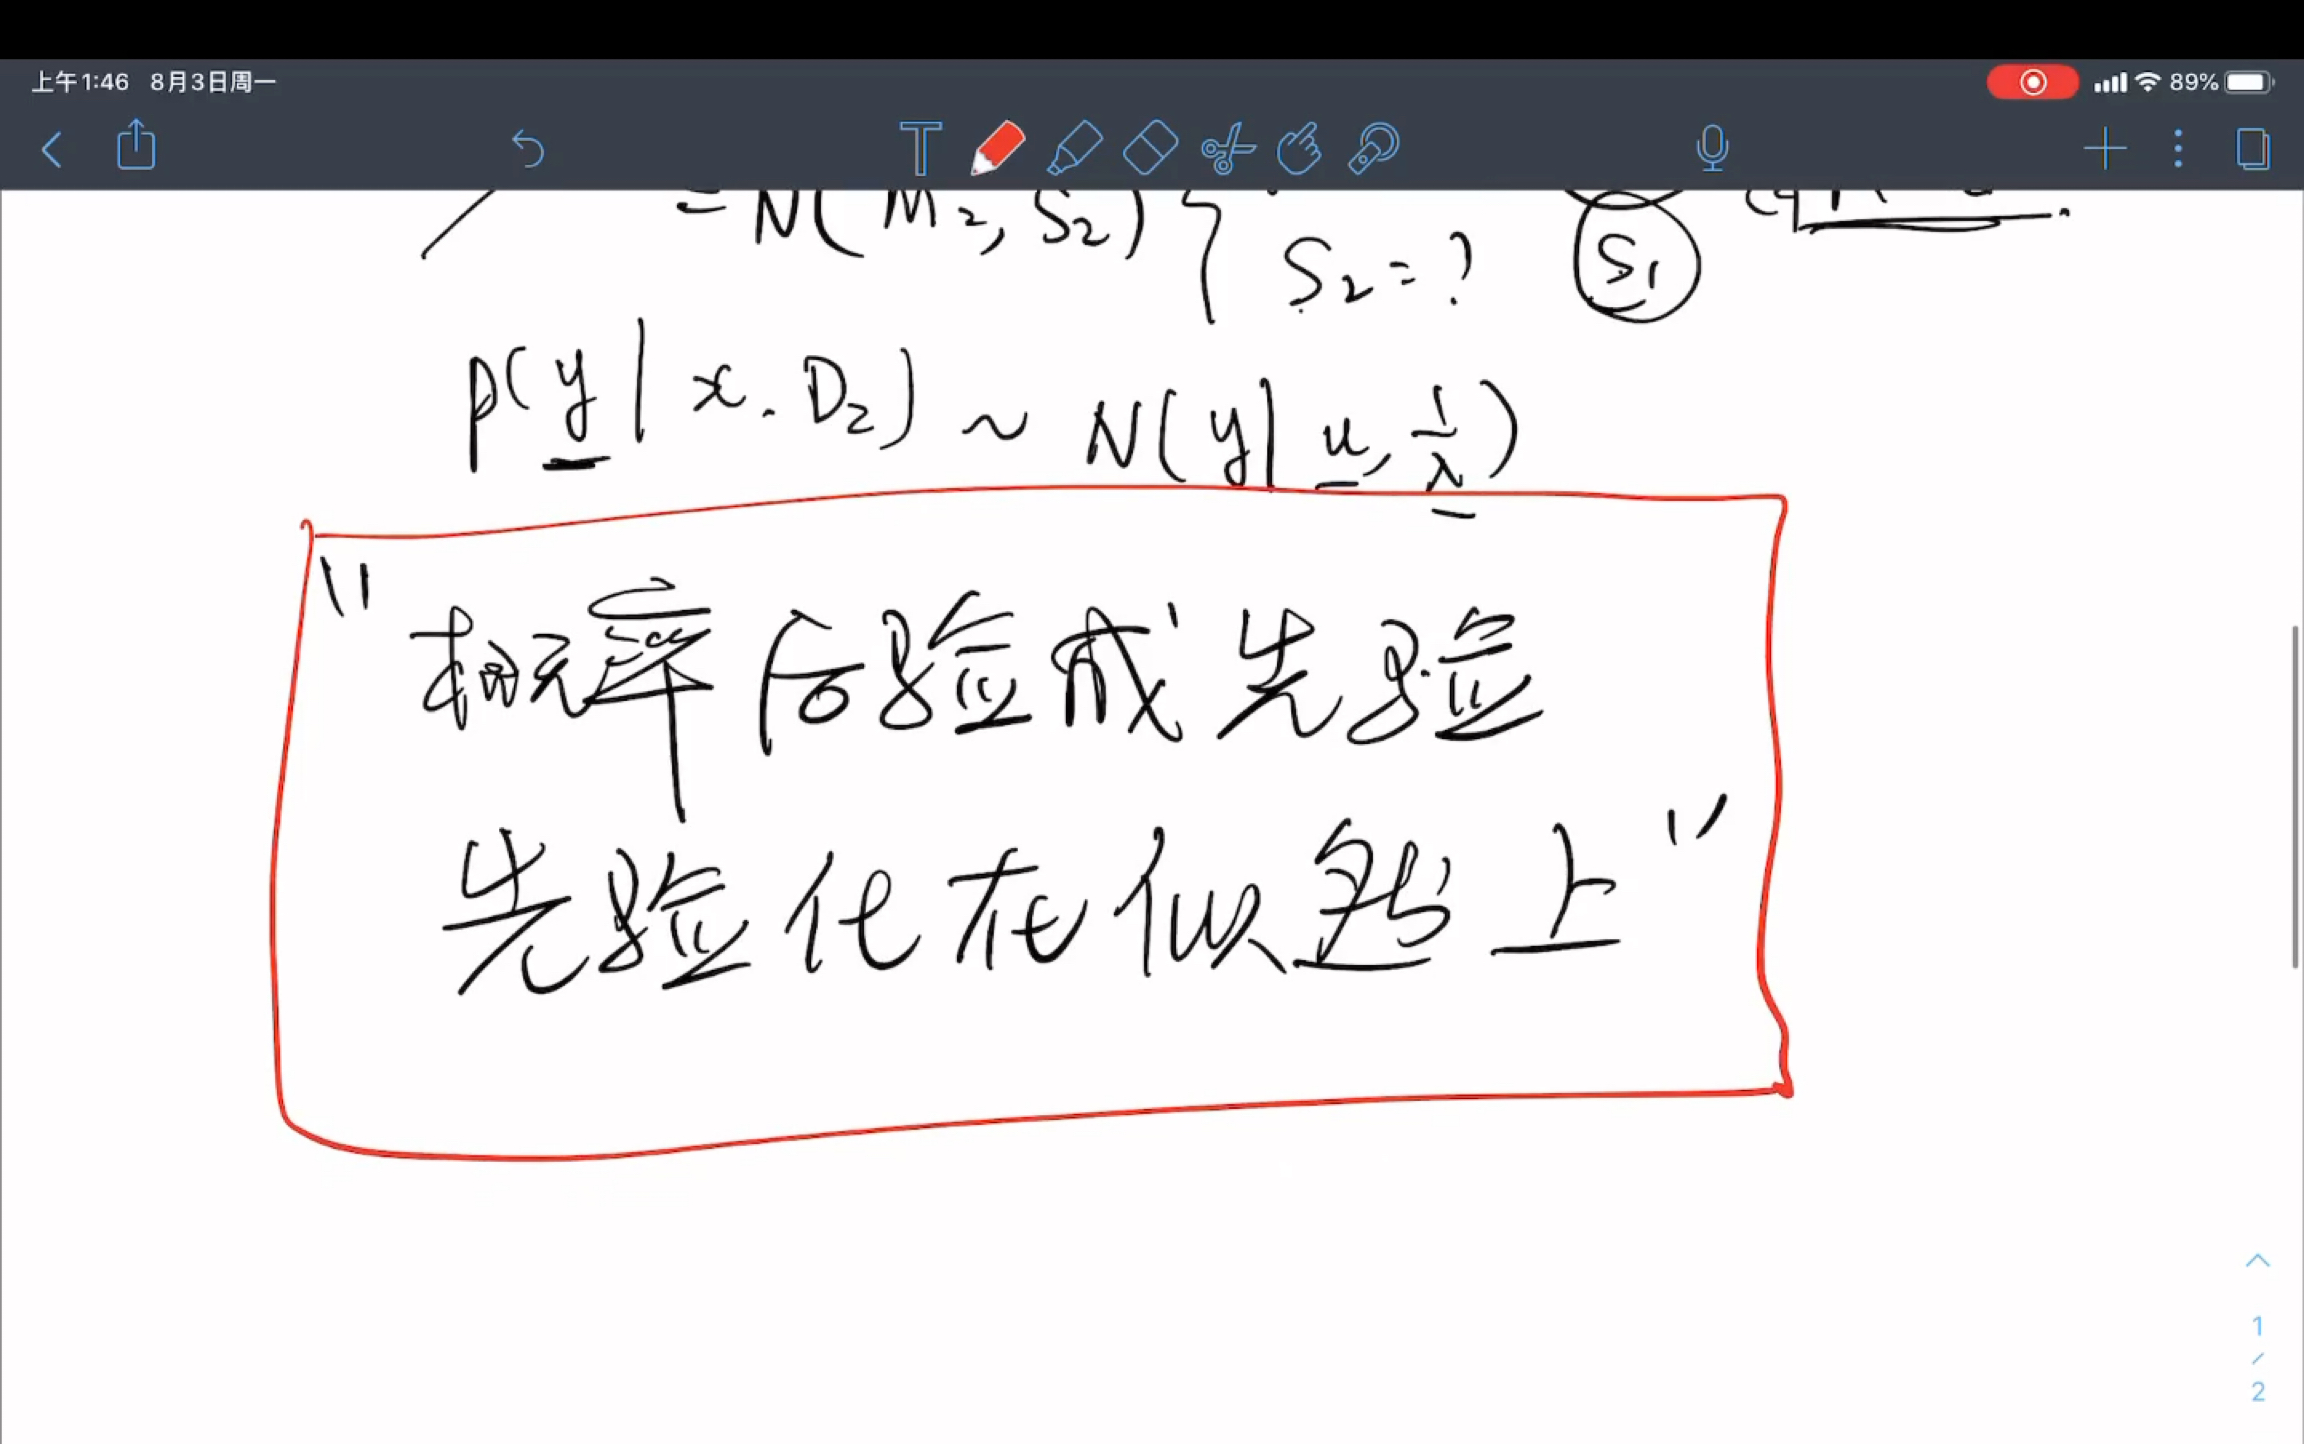 上午1:46 8月3日周一
89%
T
= N(M2, S2) {
S2 = ?
S1
p(y | x. D2) ~ N(y | u, 1/λ)
"概率后验成先验
先验化在似然上"
1
/
2